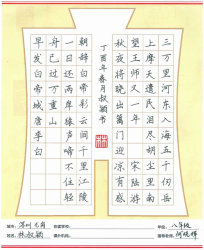 三万里河东入海五千仞岳
上摩天遗民泪尽胡尘里南
望王师又一年 宋陆游
秋夜将晓出篱门迎凉有感
丁酉年春月叔颖书
朝辞白帝彩云间千里江陵
一日还两岸猿声啼不住轻
舟已过万重山
早发白帝城唐李白
八年级
姓名：林叔颖